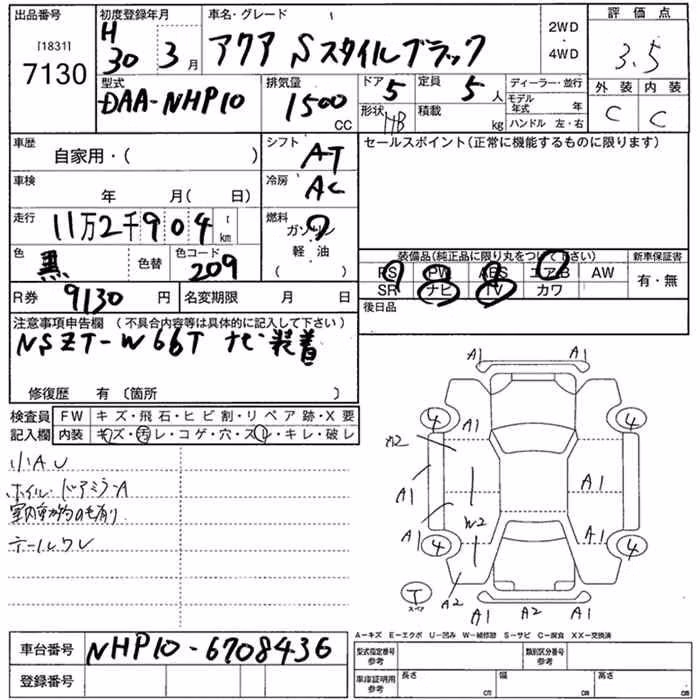 出品番号
[1831]
7130
初度登録年月
H
30 3月
車名・グレード
アクア Sスタイルブラック
2WD
・
4WD
評価点
3.5
外装 内装
C C
型式
DAA-NHP10
排気量
1500
CC
ドア
5
定員
5人
形状
HB
積載
kg
ディーラー・並行
モデル年式 年
ハンドル 左・右
車歴
自家用・( )
シフト
AT
セールスポイント(正常に機能するものに限ります)
車検
年 月( 日)
冷房
AC
走行
11万2千904 t km
燃料
ガソリン
軽油
( )
色
黒
色替
色コード
209
装備品(純正品に限り丸をつけて下さい)
PS PW ABS エアB AW
SR ナビ TV カワ
新車保証書
有・無
R券
9130円
名変期限 月 日
後日品
注意事項申告欄 (不具合内容等は具体的に記入して下さい)
NSZT-W66T ナビ装着
修復歴 有〔箇所 〕
検査員
記入欄
FW キズ・飛石・ヒビ割・リペア跡・X要
内装 キズ・汚レ・コゲ・穴・スレ・キレ・破レ
小AU
ホイル・ドアミラーA
テールワレ
A1 A1
4 A1 4
A2
A1 A1
W2
A1 A1 A1
4 4
T
スペア
A2
A1 A2 A1
A-キズ E-エクボ U-凹み W-補修跡 S-サビ C-腐食 XX-交換済
車台番号
NHP10-6708436
登録番号
型式指定番号
参考
類別区分番号
参考
車庫証明用
参考
長さ cm
幅 cm
高さ cm